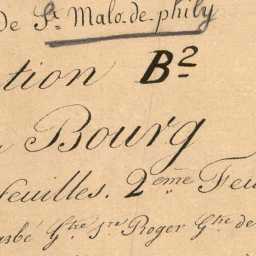 De St. Malo-de-phily
ction B2
Bourg
feuilles. 2ème Feu
arbé Ghe, sre Roger Ghe de